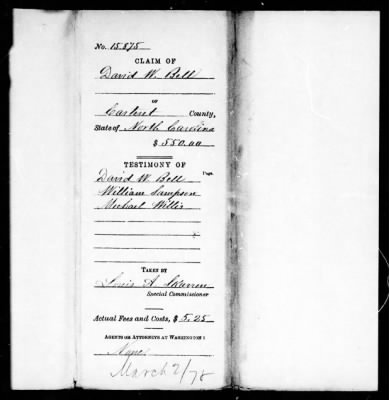 No. 15.575
CLAIM OF
David W. Bell
OF
Carteret County,
State of North Carolina
$ 550.00
TESTIMONY OF
Page.
David W. Bell
William Sampson
Michael Willis
TAKEN BY
Louis A.
Special Commissioner
Actual Fees and Costs, $ 5.25
AGENTS OR ATTORNEYS AT WASHINGTON:
None
March 2/78